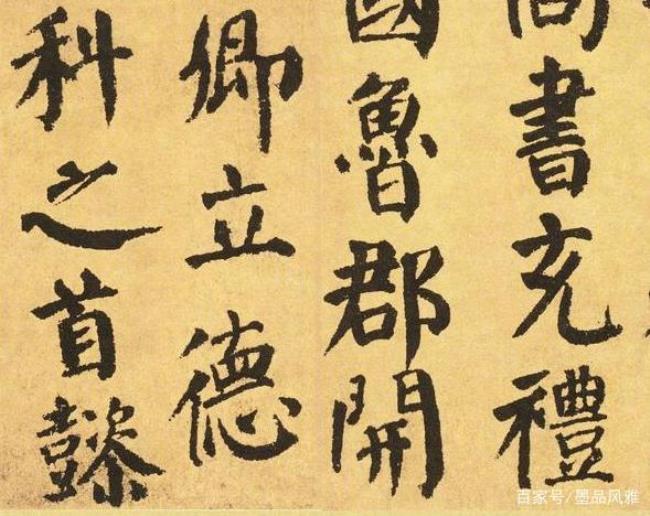 尚書充禮
國魯郡開
卿立德
科之首懿
百家号/墨品风雅